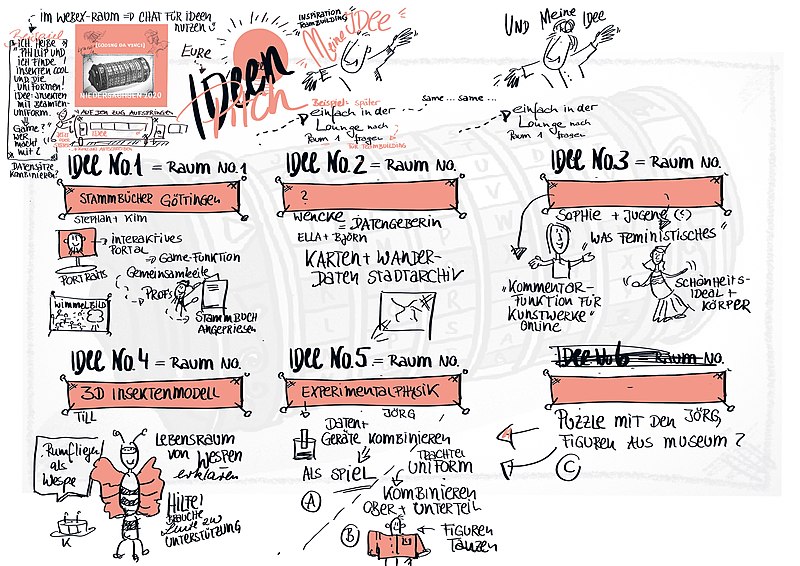 IM WEBEX-RAUM ⇒ CHAT FÜR IDEEN
NUTZEN
Beispiel
ICH HEIßE
PHILIP UND
ICH FINDE
INSEKTEN COOL
UND DIE
UNIFORMEN!
IDEE: INSEKTEN
MIT BEAMTEN-
UNIFORM.
GAME?
WER
MACHT
MIT?
DATENSÄTZE
KOMBINIEREN?
[CODING DA VINCI]
NIEDERSACHSEN 2020
AUF DEN ZUG AUFSPRINGEN
IDEE
EURE
IDEEN
PITCH
INSPIRATION
TEAMBUILDING
Meine IDEE
Beispiel: später
einfach in der
Lounge nach
Raum 1 fragen
FÜR TEAMBUILDING
SAME ... SAME ...
UND Meine Idee
einfach in der
Lounge nach
Raum 1 fragen
IDEE No.1 = RAUM NO. 1
STAMMBÜCHER GÖTTINGEN
STEPHAN + KIM
INTERAKTIVES
PORTAL
⇒ GAME-FUNKTION
PORTRAITS
GEMEINSAMKEITE
PROFS
STAMMBUCH
ANGEPRIESEN
WIMMELBILD
IDEE No.2 = RAUM NO.
?
WENCKE = DATENGEBERIN
ELLA + BJÖRN
KARTEN + WANDER-
DATEN STADTARCHIV
IDEE No.3 = RAUM NO.
SOPHIE + JUGENE (?)
"WAS FEMINISTISCHES"
"KOMMENTAR-
FUNKTION FÜR
KUNSTWERKE"
ONLINE
SCHÖNHEITS-
IDEAL +
KÖRPER
IDEE No.4 = RAUM NO.
3D INSEKTENMODELL
TILL
Rumfliegen
als
Wespe
K
LEBENSRAUM
VON WESPEN
erklären
HILFE!
BRAUCHE
Leute zur
UNTERSTÜTZUNG
IDEE No.5 = RAUM NO.
EXPERIMENTALPHYSIK
JÖRG
DATEN +
GERÄTE KOMBINIEREN
ALS SPIEL
A
TRACHTEN
UNIFORM
KOMBINIEREN
OBER + UNTERTEIL
B
FIGUREN
TANZEN
IDEE No 6 = RAUM NO.
-
PUZZLE MIT DEN JÖRG,
FIGUREN AUS MUSEUM?
C